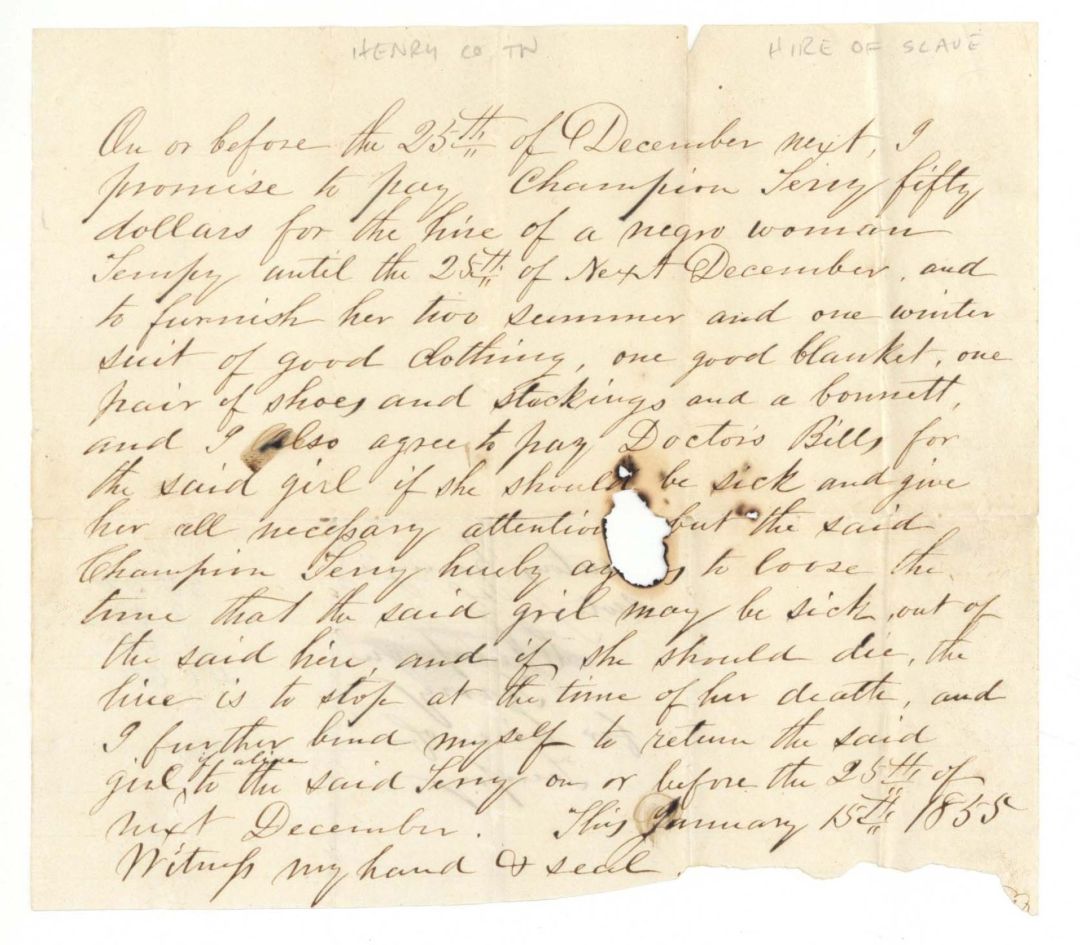 HENRY CO TN HIRE OF SLAVE
On or before the 25th of December next, I
promise to pay Champion Terry fifty
dollars for the hire of a negro woman
Tempy until the 25th of Next December, and
to furnish her two summer and one winter
suit of good clothing, one good blanket, one
pair of shoes and stockings and a bonnett,
and I also agree to pay Doctors Bills for
the said girl if she should be sick and give
her all necessary attention but the said
Champion Terry hereby to loose the
time that the said gril may be sick, out of
the said hire, and if she should die, the
hire is to stop at the time of her death, and
I further bind myself to return the said
girl, if alive to the said Terry on or before the 25th of
next December. This January 15th 1855
Witness my hand & seal.